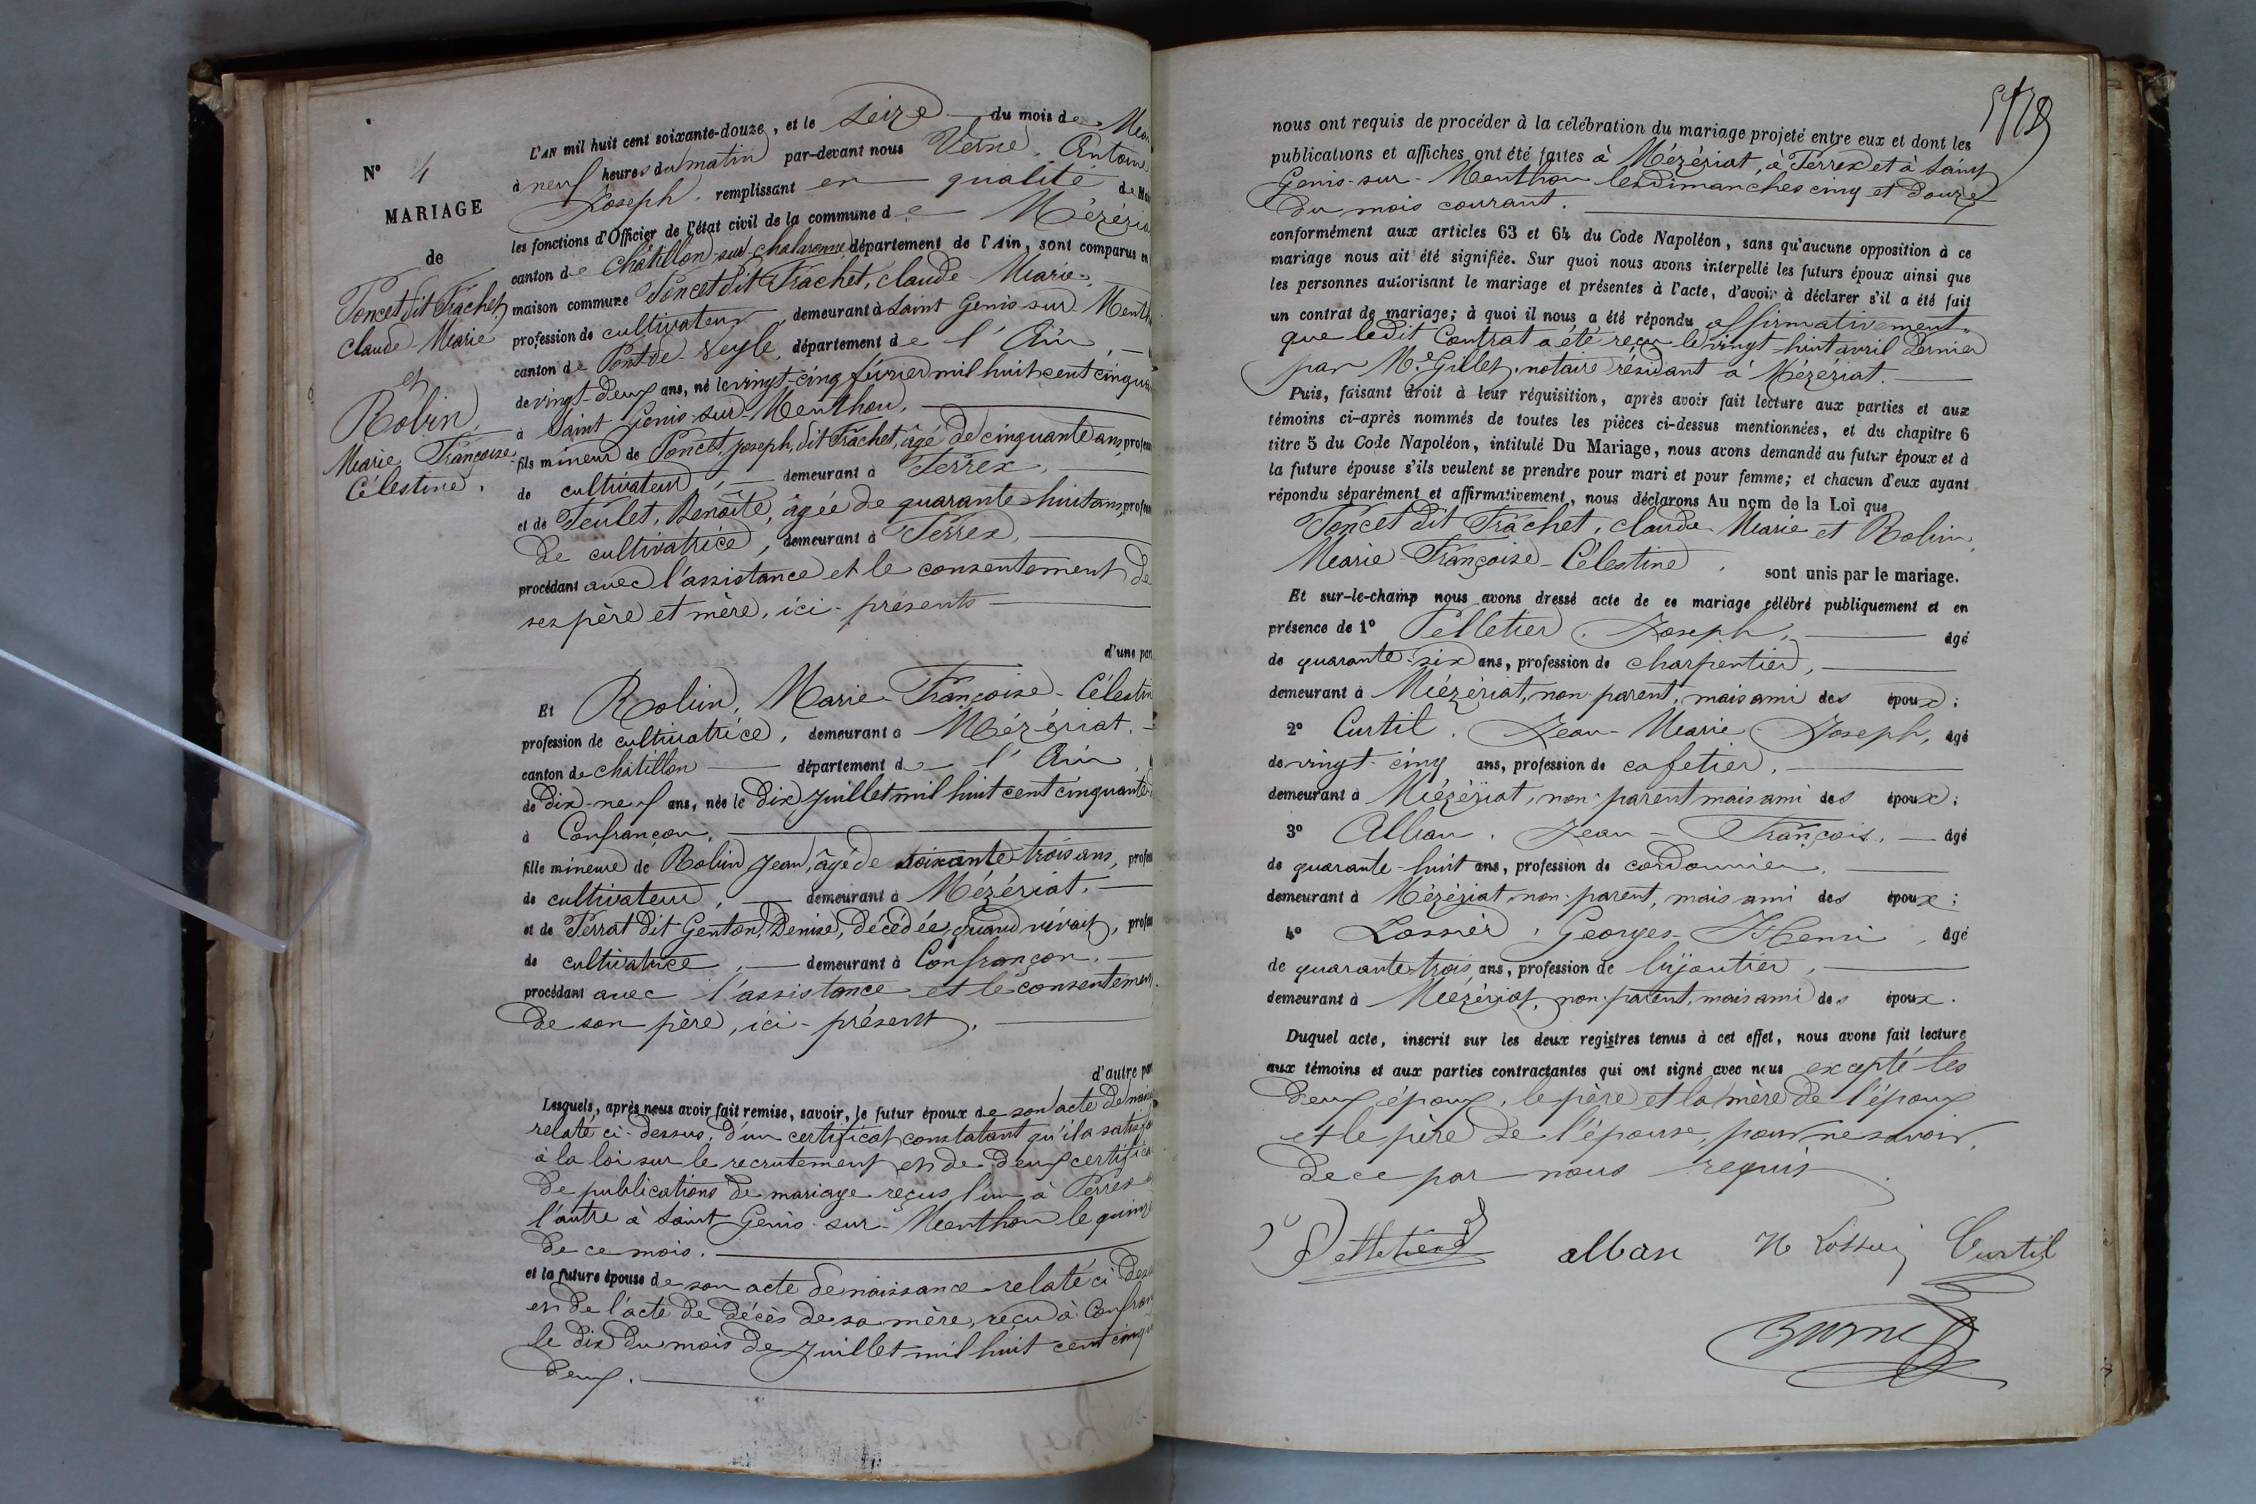 N° 4
MARIAGE
de
Poncet dit Trachet,
Claude Marie
et
Robin,
Marie Françoise
Célestine.
L'AN mil huit cent soixante-douze, et le seize du mois de
à neuf heures du matin par-devant nous Verne, Antoine
Joseph, remplissant en qualité de
les fonctions d'Officier de l'état civil de la commune de Mézéria
canton de Châtillon-sur-Chalaronne département de l'Ain, sont comparus en
maison commune Poncet dit Trachet, Claude Marie,
profession de cultivateur, demeurant à Saint Genis sur Menth
canton de Pont de Veyle, département de l'Ain,
de vingt-deux ans, né le vingt-cinq février mil huit cent cinqua
à Saint Genis-sur-Menthon,
fils mineur de Poncet, Joseph, dit Trachet, âgé de cinquante ans, profess
de cultivateur, demeurant à Perrex,
et de Teulet, Benoîte, âgée de quarante-huit ans, profess
de cultivatrice, demeurant à Perrex,
procédant avec l'assistance et le consentement de
ses père et mère, ici-présents
d'une par
Et Robin, Marie Françoise-Célestin
profession de cultivatrice, demeurant à Mézériat,
canton de Châtillon département de l'Ain,
de dix-neuf ans, née le dix juillet mil huit cent cinquante
à Confrançon,
fille mineure de Robin Jean, âgé de soixante-trois ans, profess
de cultivateur, demeurant à Mézériat,
et de Perrat dit Genton, Denise, décédée, quand vivait, profess
de cultivatrice, demeurant à Confrançon,
procédant avec l'assistance et le consentement
de son père, ici-présent.
d'autre par
Lesquels, après nous avoir fait remise, savoir, le futur époux de son acte de nais
relaté ci-dessus, d'un certificat constatant qu'il a satisf
à la loi sur le recrutement et de deux certifica
de publications de mariage reçus l'un à Perrex et
l'autre à Saint Genis-sur-Menthon le quinze
de ce mois.
et la future épouse de son acte de naissance relaté ci-des
et de l'acte de décès de sa mère, reçu à Confran
le dix du mois de Juillet mil huit cent cinq
deux.
nous ont requis de procéder à la célébration du mariage projeté entre eux et dont les
publications et affiches ont été faites à Mézériat, à Perrex et à Saint
Genis-sur-Menthon les dimanches cinq et douze
du mois courant.
conformément aux articles 63 et 64 du Code Napoléon, sans qu'aucune opposition à ce
mariage nous ait été signifiée. Sur quoi nous avons interpellé les futurs époux ainsi que
les personnes autorisant le mariage et présentes à l'acte, d'avoir à déclarer s'il a été fait
un contrat de mariage; à quoi il nous a été répondu affirmativement
que le dit Contrat a été reçu le vingt-huit avril dernier
par Me Gillet, notaire résidant à Mézériat.
Puis, faisant droit à leur réquisition, après avoir fait lecture aux parties et aux
témoins ci-après nommés de toutes les pièces ci-dessus mentionnées, et du chapitre 6
titre 5 du Code Napoléon, intitulé Du Mariage, nous avons demandé au futur époux et à
la future épouse s'ils veulent se prendre pour mari et pour femme; et chacun d'eux ayant
répondu séparément et affirmativement, nous déclarons Au nom de la Loi que
Poncet dit Trachet, Claude Marie et Robin,
Marie Françoise-Célestine, sont unis par le mariage.
Et sur-le-champ nous avons dressé acte de ce mariage célébré publiquement et en
présence de 1° Pelletier, Joseph, âgé
de quarante-six ans, profession de charpentier,
demeurant à Mézériat, non-parent, mais ami des époux;
2° Curtil, Jean-Marie Joseph, âgé
de vingt-cinq ans, profession de cafetier,
demeurant à Mézériat, non-parent mais ami des époux;
3° Alban, Jean-François, âgé
de quarante-huit ans, profession de cordonnier,
demeurant à Mézériat, non-parent, mais ami des époux;
4° Lossier, Georges-Henri, âgé
de quarante-trois ans, profession de bijoutier,
demeurant à Mézériat, non-parent, mais ami des époux.
Duquel acte, inscrit sur les deux registres tenus à cet effet, nous avons fait lecture
aux témoins et aux parties contractantes qui ont signé avec nous excepté les
deux époux, le père et la mère de l'époux
et le père de l'épouse, pour ne savoir,
de ce par nous requis.
Pelletier alban H Lossier Curtil
Verne